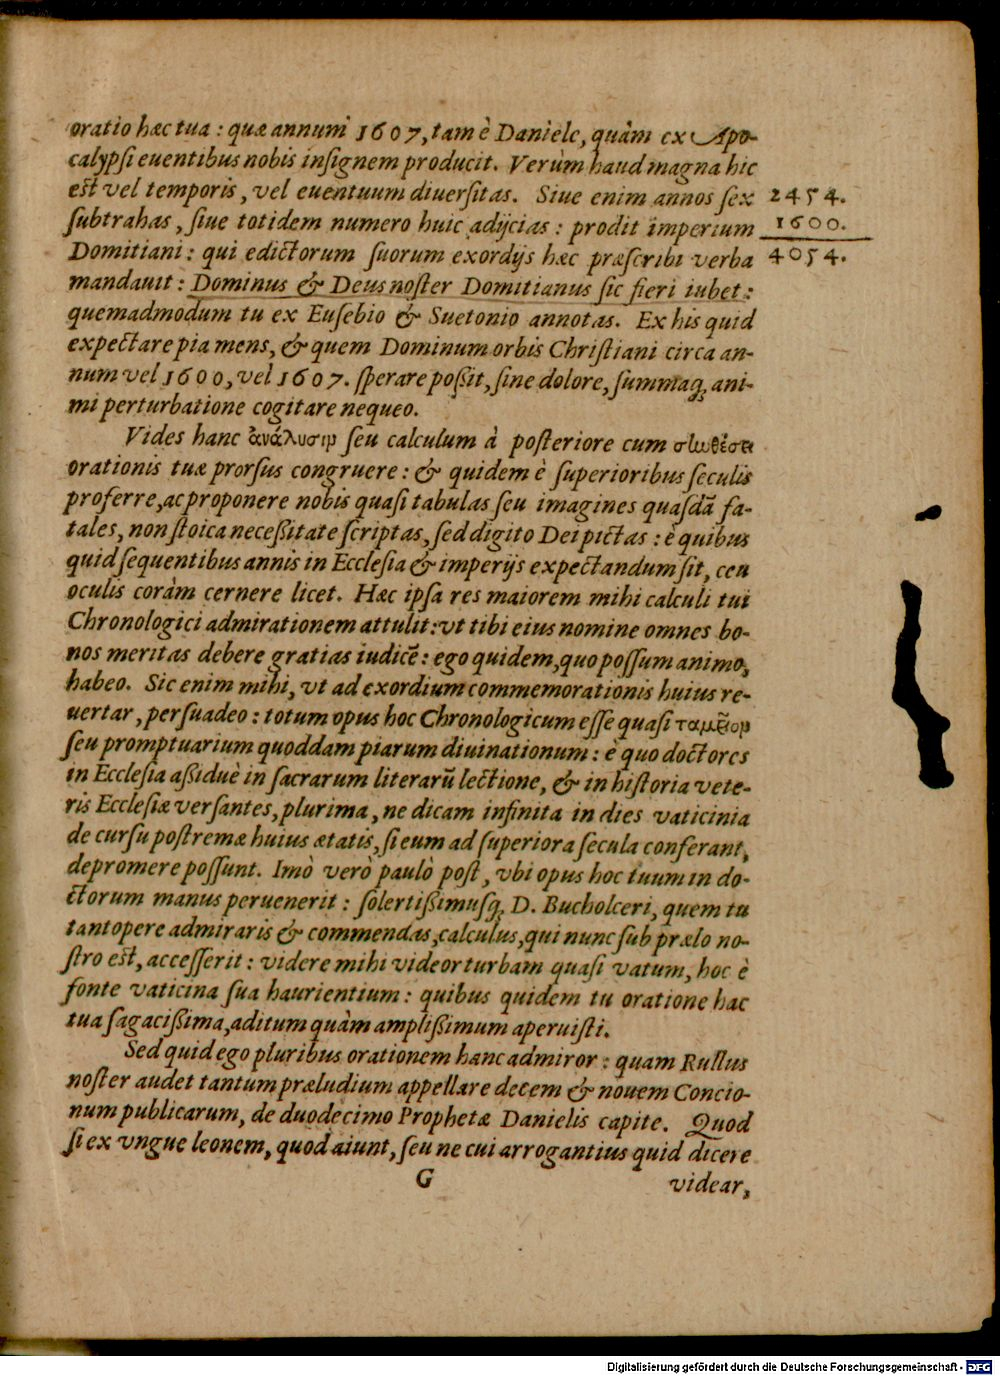 oratio hæc tua : quæ annum 1607, tam è Daniele, quàm ex Apo-
calypsi euentibus nobis insignem producit. Verùm haud magna hic
est vel temporis, vel euentuum diuersitas. Siue enim annos sex
subtrahas, siue totidem numero huic adijcias : prodit imperium
Domitiani : qui edictorum suorum exordijs hæc præscribi verba
mandauit : Dominus & Deus noster Domitianus sic fieri iubet :
quemadmodum tu ex Eusebio & Suetonio annotas. Ex his quid
expectare pia mens, & quem Dominum orbis Christiani circa an-
num vel 1600, vel 1607. sperare poßit, sine dolore, summaq́; ani-
mi perturbatione cogitare nequeo.
2454.
1600.
4054.
Vides hanc ἀνάλυσιν seu calculum à posteriore cum συνθέσει
orationis tuæ prorsus congruere : & quidem è superioribus seculis
proferre, ac proponere nobis quasi tabulas seu imagines quasdā fa-
tales, non stoica neceßitate scriptas, sed digito Dei pictas : è quibus
quid sequentibus annis in Ecclesia & imperijs expectandum sit, ceu
oculis coràm cernere licet. Hæc ipsa res maiorem mihi calculi tui
Chronologici admirationem attulit : vt tibi eius nomine omnes bo-
nos meritas debere gratias iudicē : ego quidem, quo possum animo,
habeo. Sic enim mihi, vt ad exordium commemorationis huius re-
uertar, persuadeo : totum opus hoc Chronologicum esse quasi ταμεῖον
seu promptuarium quoddam piarum diuinationum : è quo doctores
in Ecclesia aßiduè in sacrarum literarū lectione, & in historia vete-
ris Ecclesiæ versantes, plurima, ne dicam infinita in dies vaticinia
de cursu postremæ huius ætatis, si eum ad superiora secula conferant,
depromere possunt. Imò verò paulò post, vbi opus hoc tuum in do-
ctorum manus peruenerit : solertißimusq́; D. Bucholceri, quem tu
tantopere admiraris & commendas, calculus, qui nunc sub prælo no-
stro est, accesserit : videre mihi videor turbam quasi vatum, hoc è
fonte vaticina sua haurientium : quibus quidem tu oratione hac
tua sagacißima, aditum quàm amplißimum aperuisti.
Sed quid ego pluribus orationem hanc admiror : quam Rullus
noster audet tantum præludium appellare decem & nouem Concio-
num publicarum, de duodecimo Prophetæ Danielis capite. Quod
si ex vngue leonem, quod aiunt, seu ne cui arrogantius quid dicere
G videar,
Digitalisierung gefördert durch die Deutsche Forschungsgemeinschaft - DFG